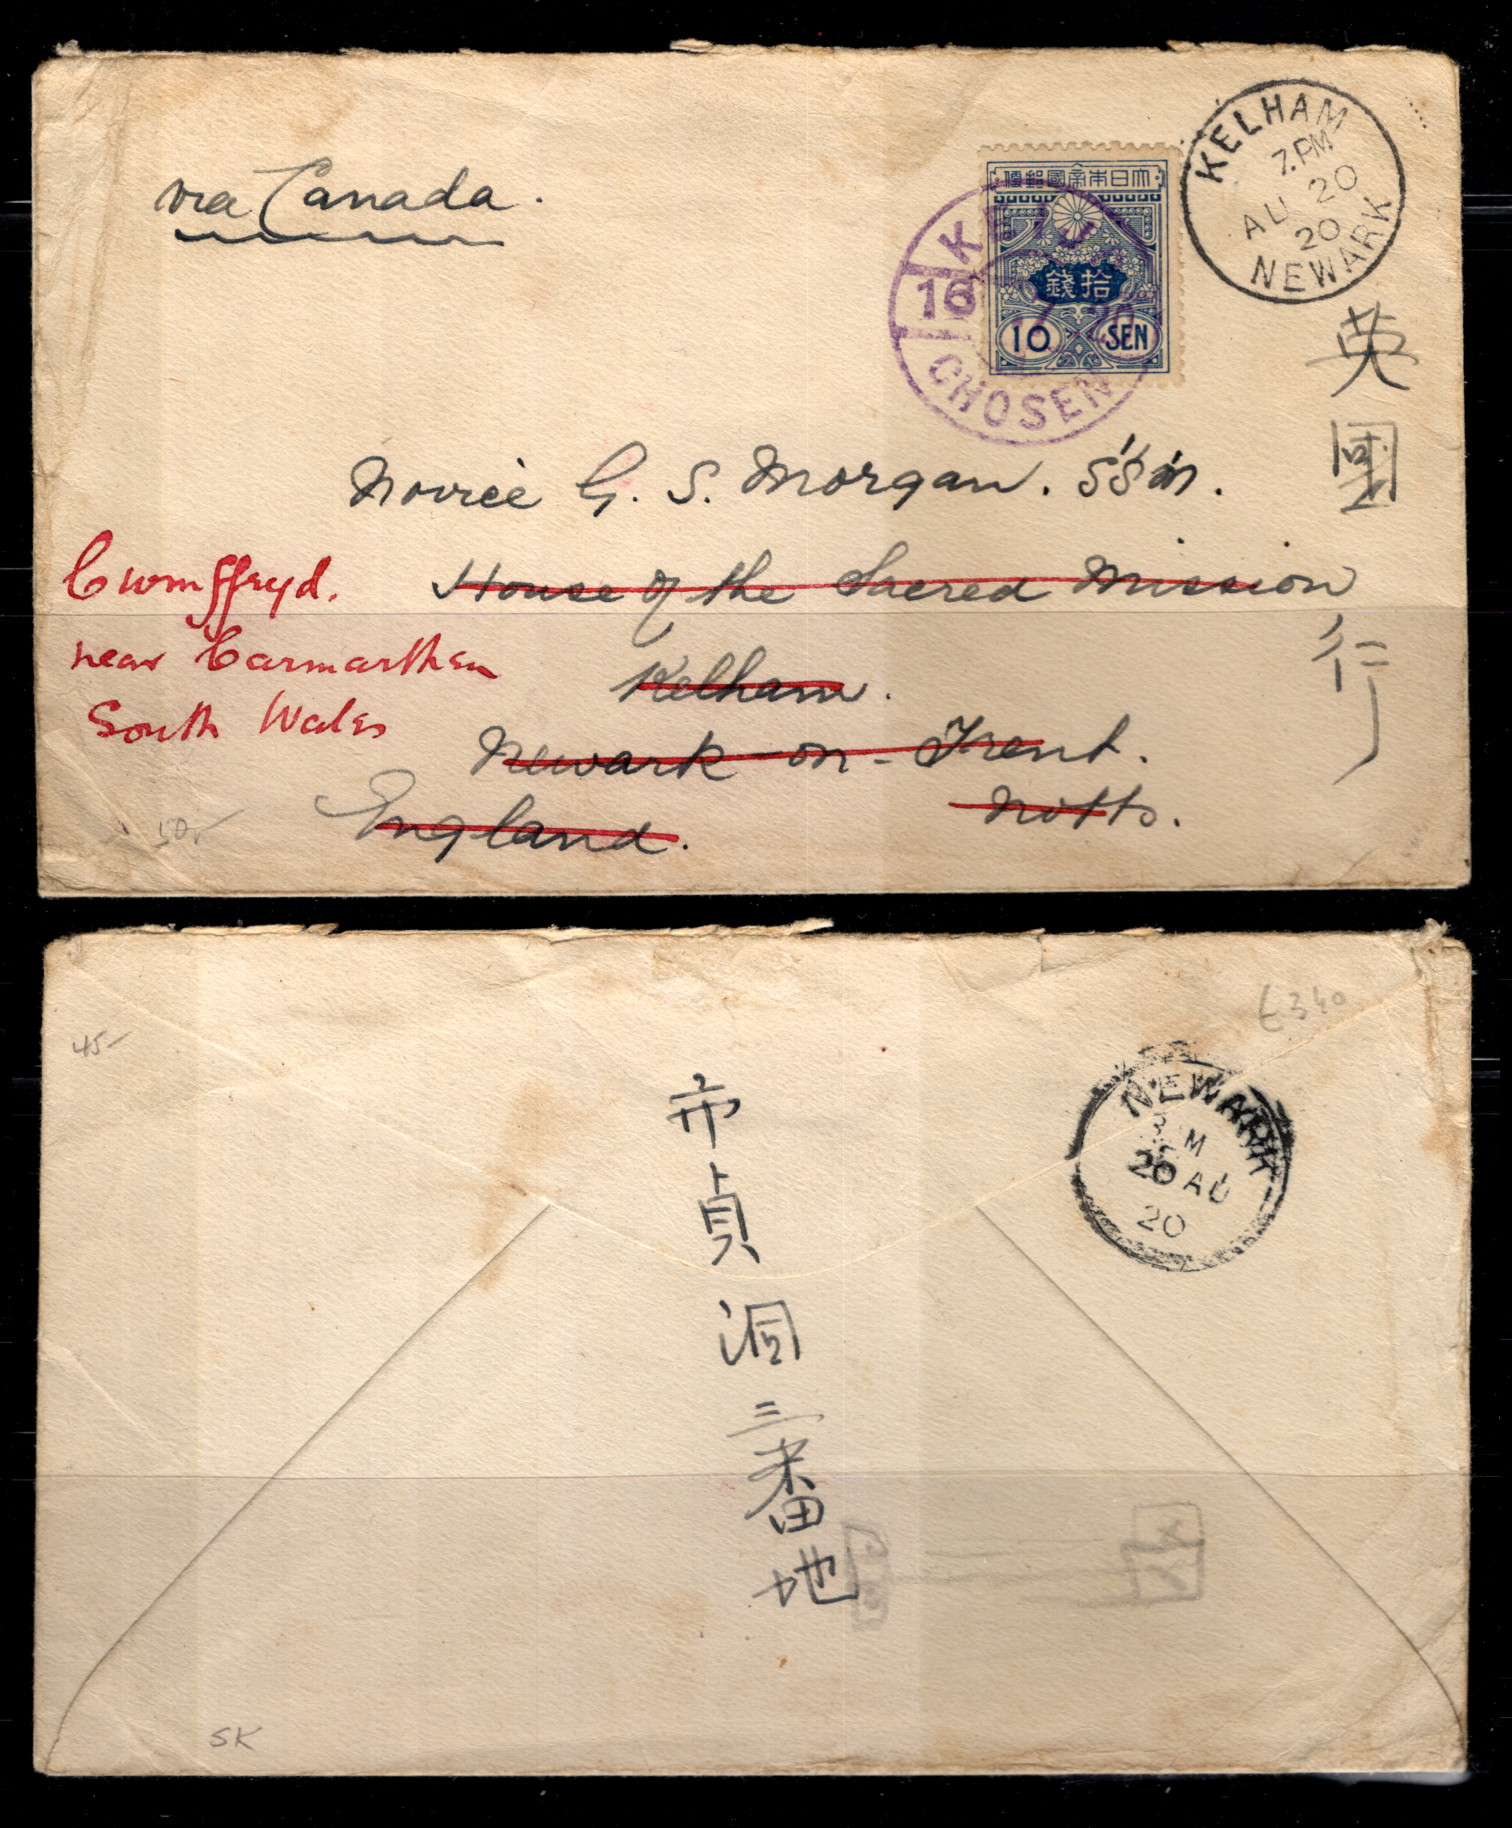 via Canada.
大日本帝國郵便
拾錢
10 SEN
KEIJO
16
7.20
CHOSEN
KELHAM
7.PM
AU 20
20
NEWARK
英國行
Novice G. S. Morgan. S.S.M.
House of the Sacred Mission
Kelham.
Newark-on-Trent.
Notts.
England.
Cwmffryd.
near Carmarthen
South Wales
50,-
45-
£340
NEWARK
20 AU
20
市貞洞三番地
SK